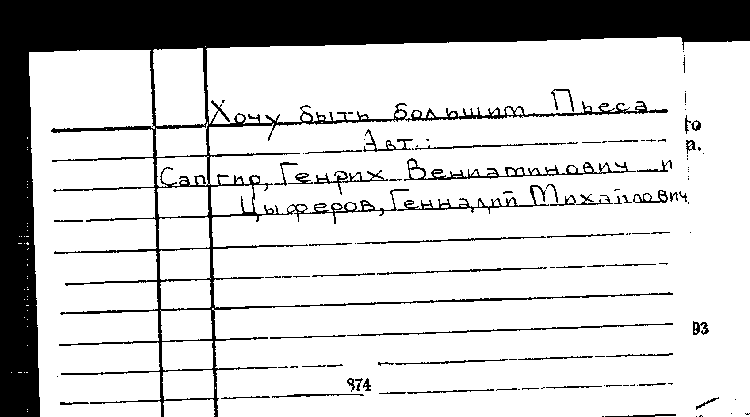 Хочу быть большим. Пьеса
Авт.:
Сапгир, Генрих Вениаминович и
Цыферов, Геннадий Михайлович
го
а.
93
874